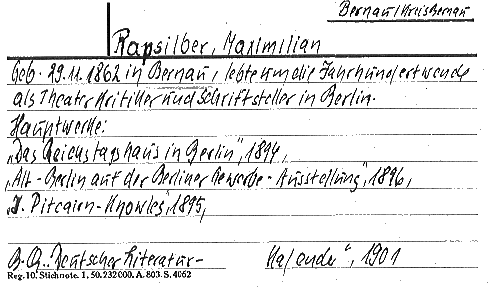 Bernau/Kreis Bernau
Rapsilber, Maximilian
Geb. 29.11.1862 in Bernau, lebte um die Jahrhundertwende
als Theater Kritiker und Schriftsteller in Berlin.
Hauptwerke:
„Das Reichstagshaus in Berlin", 1894,
„Alt-Berlin auf der Berliner Gewerbe-Ausstellung", 1896,
Pitcairn-Knowles", 1895,
Deutscher Literatur- Kalender", 1901
Reg. 10. Stichnote. 1, 50. 232000. A. 803. S. 4062